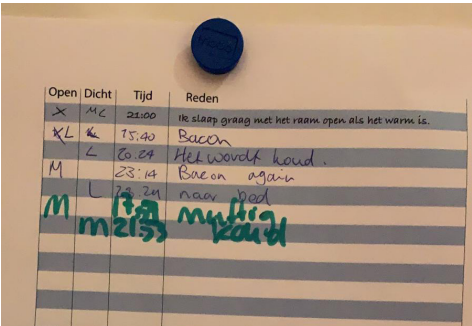 Open Dicht Tijd Reden
X MC 21:00 Ik slaap graag met het raam open als het warm is.
XL 15:40 Bacon
L 20.24 Het wordt koud.
M 23:14 Bacon again
L naar bed
M muffig
m 21:33 koud